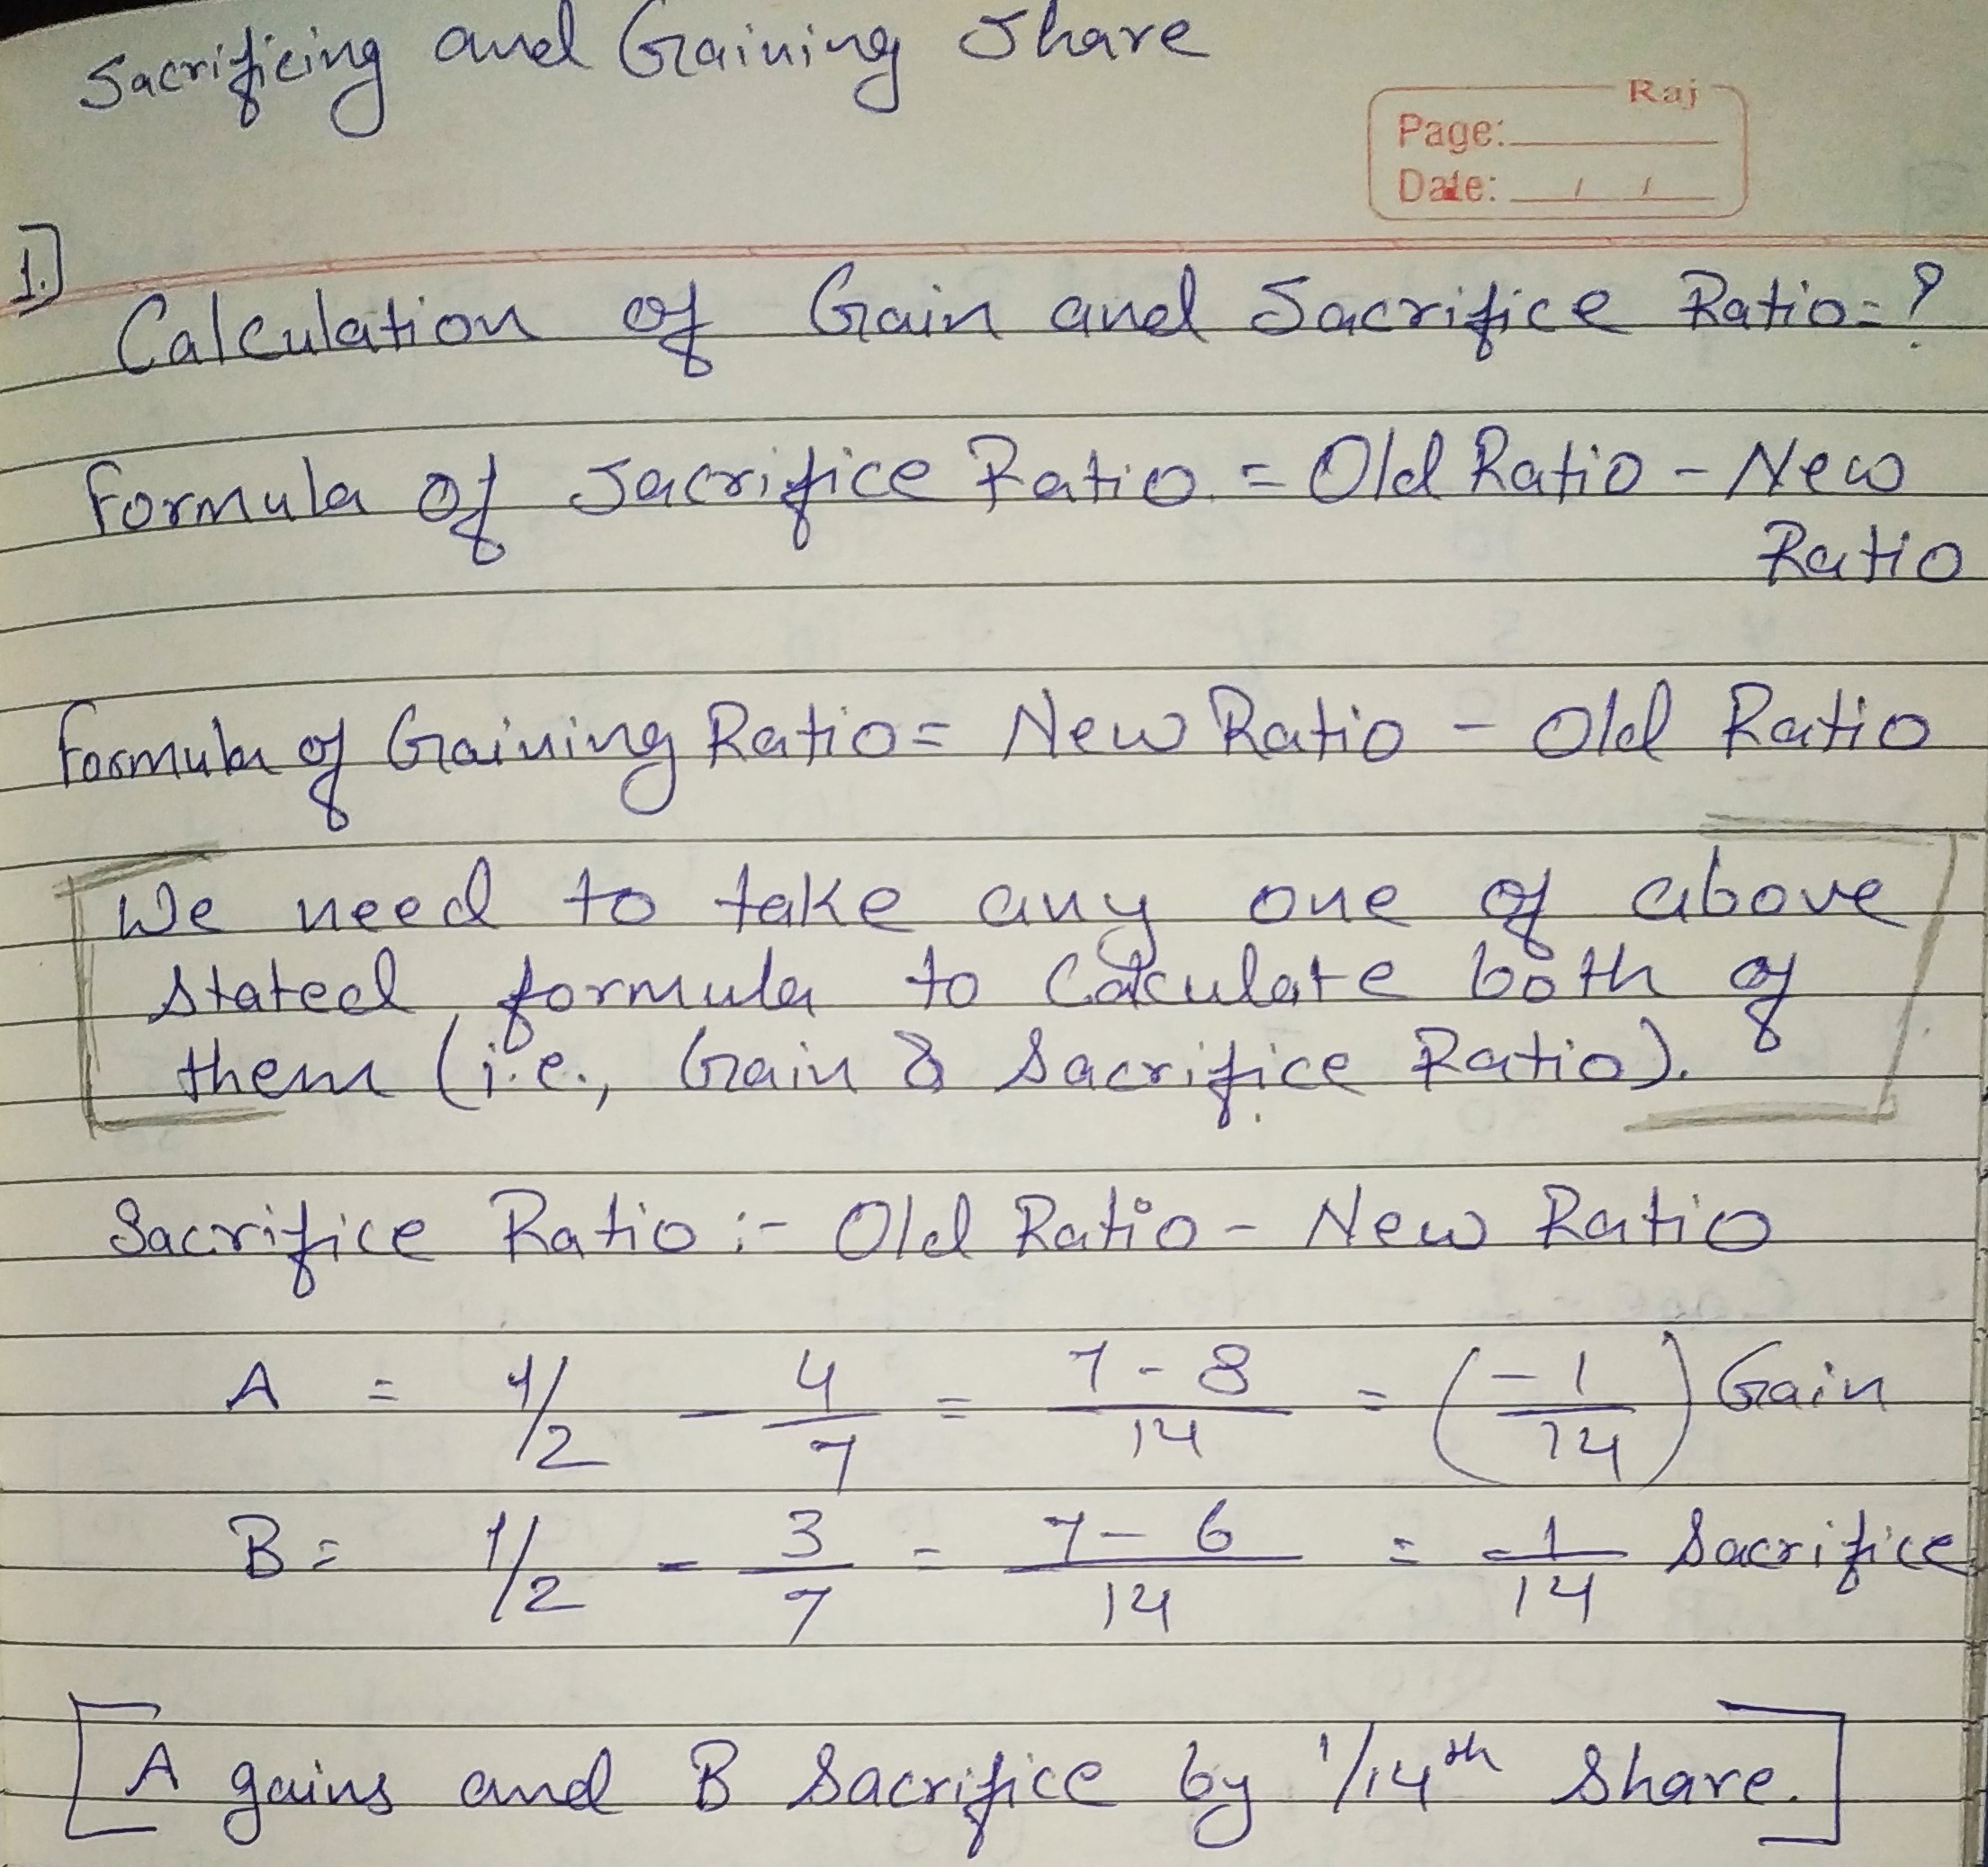 Sacrificing and Gaining Share
Raj
Page:
Date: / /
1.]
Calculation of Gain and Sacrifice Ratio=?
Formula of Sacrifice Ratio = Old Ratio - New
Ratio
Formula of Gaining Ratio= New Ratio - Old Ratio
We need to take any one of above
stated formula to Calculate both of
them (i.e., Gain & Sacrifice Ratio).
Sacrifice Ratio :- Old Ratio - New Ratio
A = 1/2 - 4/7 = 7-8/14 = (-1/14) Gain
B = 1/2 - 3/7 = 7-6/14 = 1/14 Sacrifice
[A gains and B Sacrifice by 1/14th Share.]